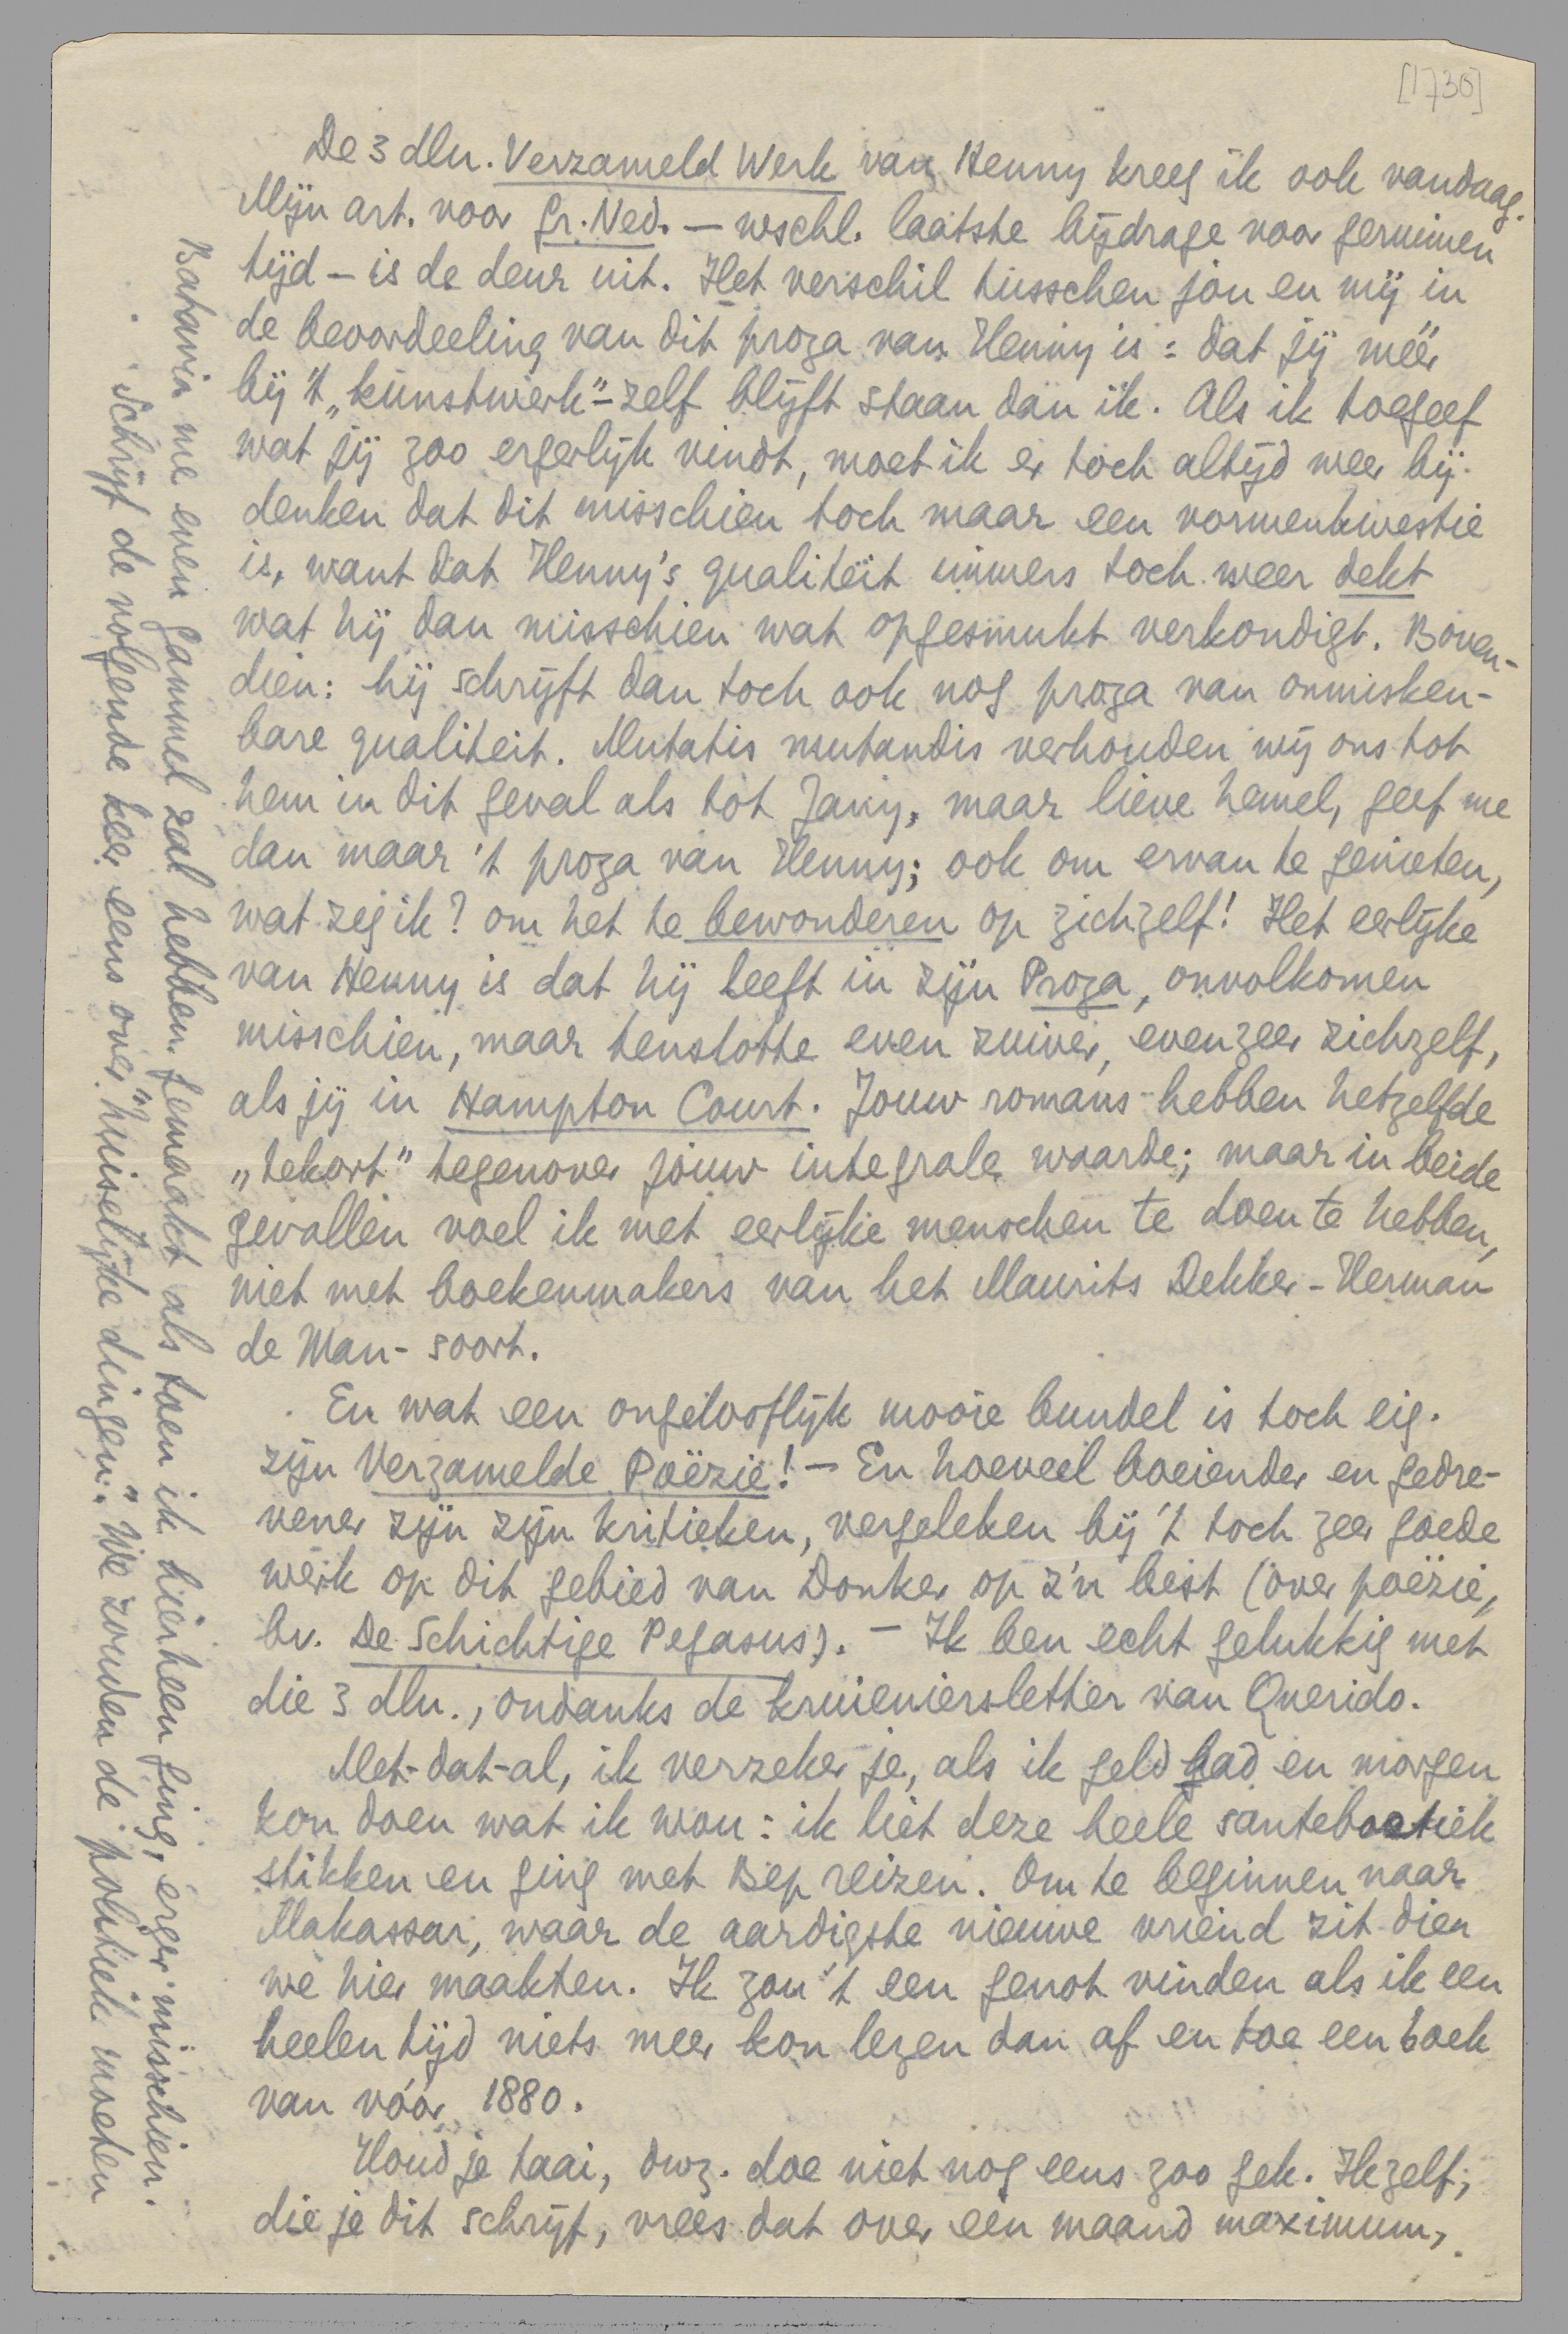 [1730]
De 3 dln. Verzameld Werk van Henny kreeg ik ook vandaag.
Mijn art. voor Gr. Ned. — wschl. laatste bijdrage voor geruimen
tijd — is de deur uit. Het verschil tusschen jou en mij in
de beoordeeling van dit proza van Henny is: dat jij méér
bij 't „kunstwerk"-zelf blijft staan dan ik. Als ik toegeef
wat jij zoo ergerlijk vindt, moet ik er toch altijd weer bij-
denken dat dit misschien toch maar een vormenkwestie
is, want dat Henny's qualiteit immers toch weer dekt
wat hij dan misschien wat opgesmukt verkondigt. Boven-
dien: hij schrijft dan toch ook nog proza van onmisken-
bare qualiteit. Mutatis mutandis verhouden wij ons tot
hem in dit geval als tot Jany, maar lieve hemel, geef me
dan maar 't proza van Henny; ook om ervan te genieten,
wat zeg ik? om het te bewonderen op zichzelf! Het eerlijke
van Henny is dat hij leeft in zijn Proza, onvolkomen
misschien, maar tenslotte even zuiver, evenzeer zichzelf,
als jij in Hampton Court. Jouw romans hebben hetzelfde
„tekort" tegenover jouw integrale waarde; maar in beide
gevallen voel ik met eerlijke menschen te doen te hebben,
niet met boekenmakers van het Maurits Dekker-Herman
de Man-soort.
En wat een ongelooflijk mooie bundel is toch eig.
zijn Verzamelde Poëzie! — En hoeveel boeiender en gedre-
vener zijn zijn kritieken, vergeleken bij 't toch zeer goede
werk op dit gebied van Donker op z'n best (over poëzie,
bv. De Schichtige Pegasus). — Ik ben echt gelukkig met
die 3 dln., ondanks de kruieniersletter van Querido.
Met-dat-al, ik verzeker je, als ik geld had en morgen
kon doen wat ik wou: ik liet deze heele santeboetiek
stikken en ging met Bep reizen. Om te beginnen naar
Makassar, waar de aardigste nieuwe vriend zit dien
we hier maakten. Ik zou 't een genot vinden als ik een
heelen tijd niets meer kon lezen dan af en toe een boek
van vóór 1880.
Houd je taai, dwz. doe niet nog eens zoo gek. Ikzelf,
die je dit schrijf, vrees dat over een maand maximum,
Batavia me even gammel zal hebben gemaakt als toen ik hierheen ging, erger misschien.
Schrijf de volgende keer eens over "huiselijke dingen". We zouden de politiek moeten